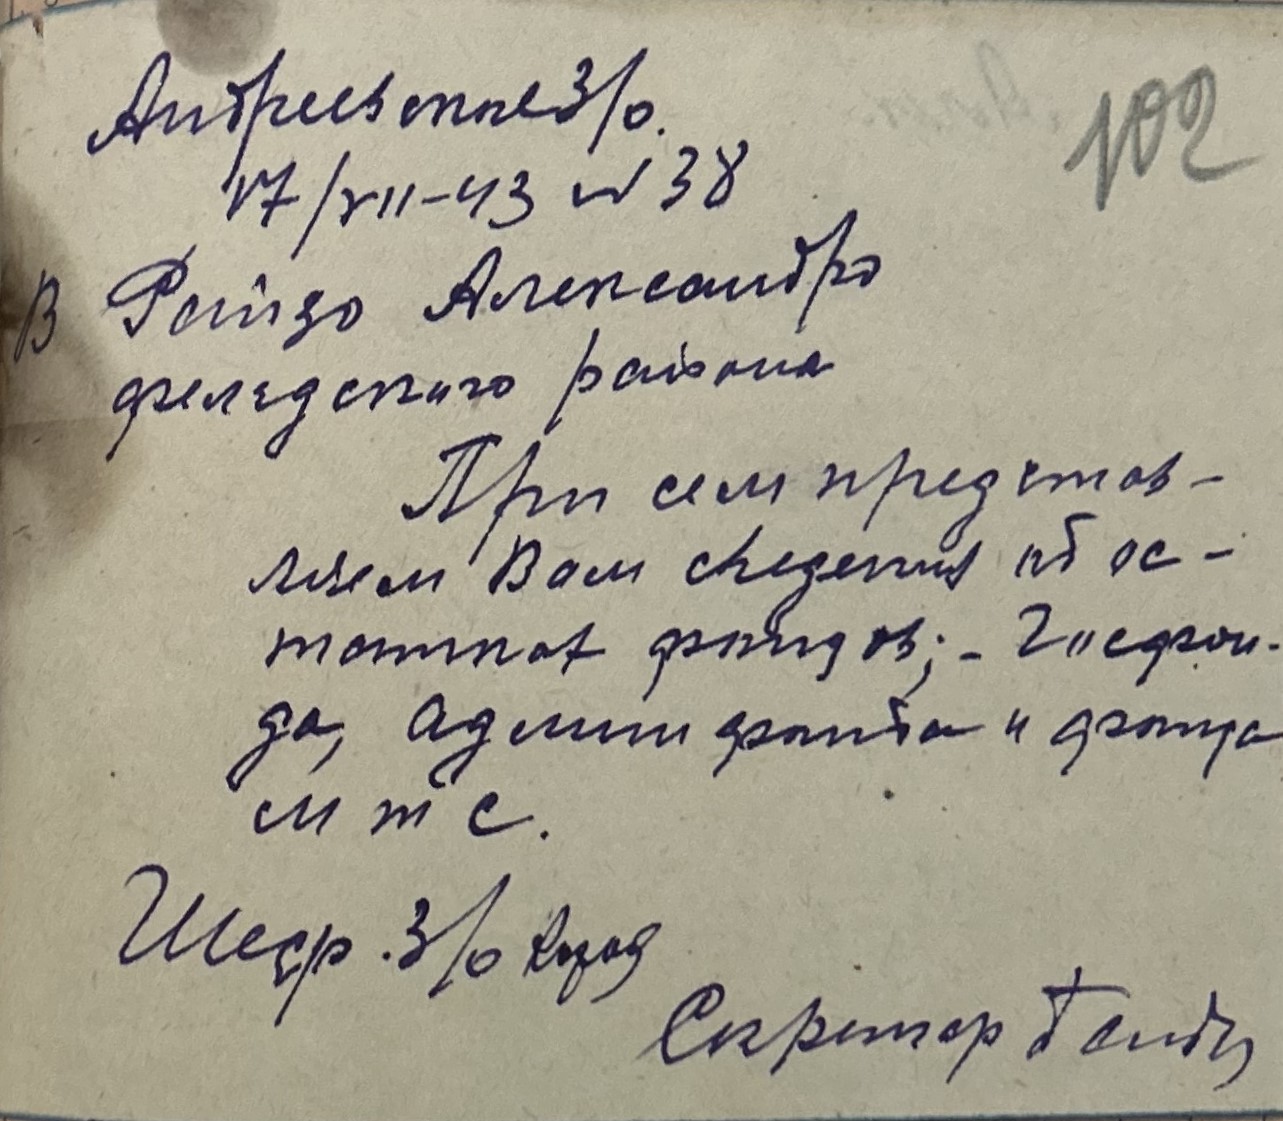 Андреевское З/о.
102
17/VII-43 N 38
В Райзо Александро
фельдского района
При сем представ-
ляем Вам сведения об ос-
татках фондов; - Госфон-
да, Админ фонда и фонда
м т с.
Шеф. З/о
Секретар